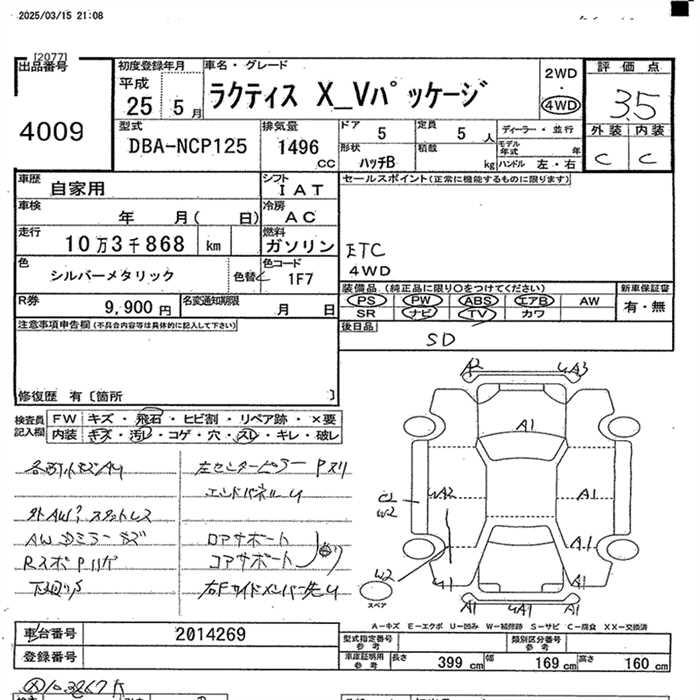 2025/03/15 21:08
[2077]
出品番号
4009
初度登録年月
平成
25 5 月
車名・グレード
ラクティス X_Vパッケージ
2WD
・
4WD
評価点
3.5
外装 内装
C C
型式
DBA-NCP125
排気量
1496 cc
ドア 5
定員 5 人
形状 ハッチB
積載 kg
ディーラー・並行
モデル年式 年
ハンドル 左・右
車歴 自家用
シフト IAT
車検 年 月( 日)
冷房 AC
走行 10万3千868 km
燃料 ガソリン
色 シルバーメタリック
色替
色コード 1F7
R券 9,900 円
名変通知期限 月 日
セールスポイント(正常に機能するものに限ります)
ETC
4WD
装備品(純正品に限り○をつけてください)
PS PW ABS エアB AW
SR ナビ TV カワ
新車保証書
有・無
後日品
SD
注意事項申告欄(不具合内容等は具体的に記入して下さい)
修復歴 有〔箇所 〕
検査員記入欄
FW キズ・飛石・ヒビ割・リペア跡・×要
内装 キズ・汚レ・コゲ・穴・スレ・キレ・破レ
左センターピラー Pズリ
エンドパネルU
外AW? スタットレス
ロアサポート
コアサポート
A2 WA3
A1
WA2 A1
W2
A1
W2
A1
A1 A1
スペア
A-キズ E-エクボ U-凹み W-補修跡 S-サビ C-腐食 XX-交換済
車台番号 2014269
登録番号
型式指定番号 参考
類別区分番号 参考
車庫証明用 参考
長さ 399 cm 幅 169 cm 高さ 160 cm